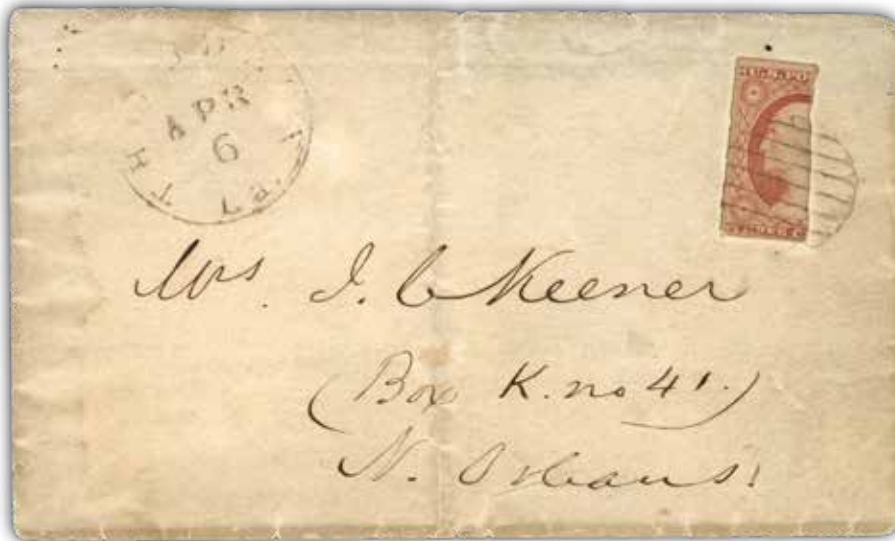 APR
6
Mrs. J. C Keener
(Box K. no 41.)
N. Orleans.